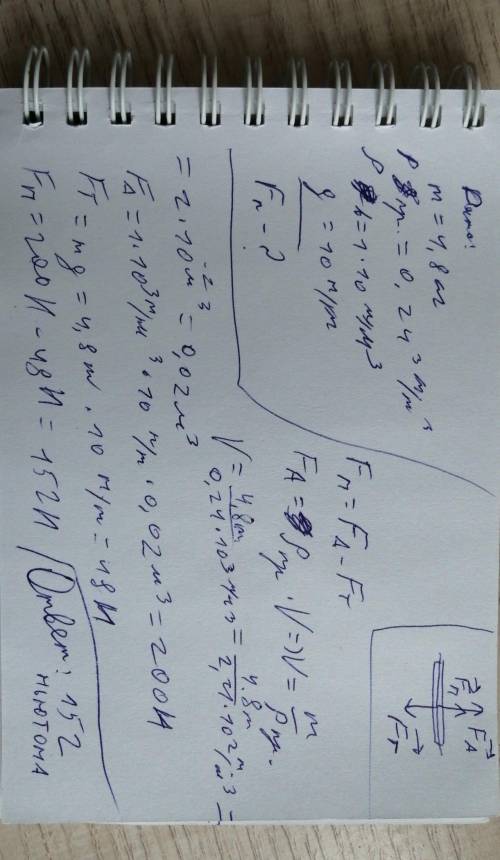 Дано:
m = 4,8 кг
ρ пр. = 0,24·10³ кг/м³
ρ в = 1·10³ кг/м³
g = 10 Н/кг
Fп - ?
Fп FА
Fт
Fп = FА - Fт
FА = ρпр. · V => V = m/ρпр.
V = 4,8кг/0,24·10³ кг/м³ = 4,8кг/2,4·10² кг/м³ =
= 2·10⁻² м³ = 0,02 м³
FА = 1·10³ кг/м³ · 10 Н/кг · 0,02 м³ = 200 Н
Fт = mg = 4,8 кг · 10 Н/кг = 48 Н
Fп = 200 Н - 48 Н = 152 Н
Ответ: 152
ньютона